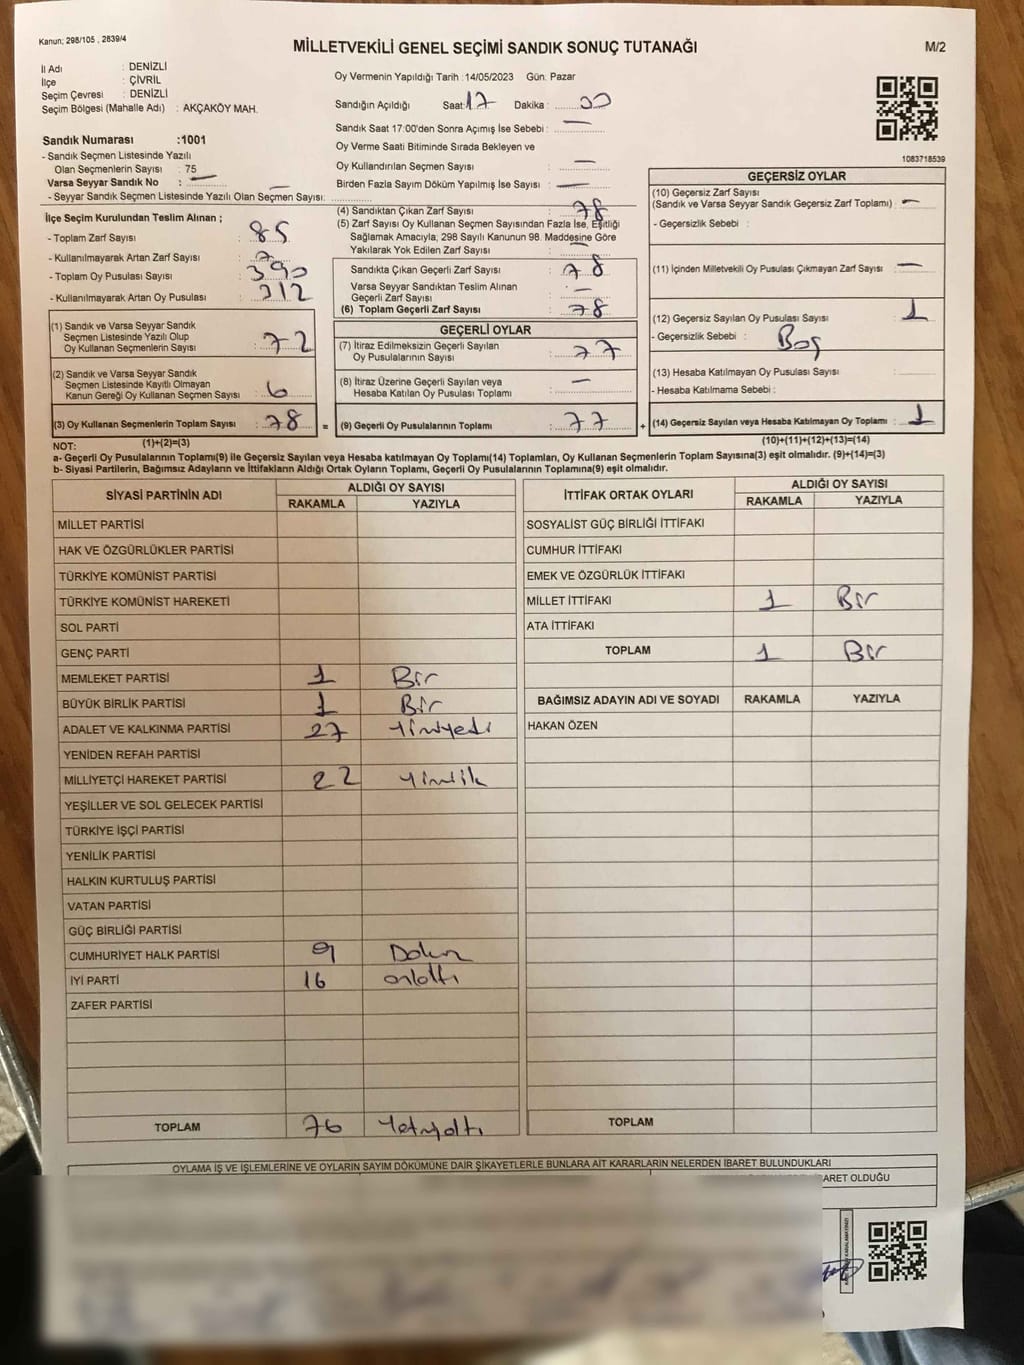 Kanun; 298/105 , 2839/4
MİLLETVEKİLİ GENEL SEÇİMİ SANDIK SONUÇ TUTANAĞI
M/2
İl Adı : DENİZLİ
İlçe : ÇİVRİL
Seçim Çevresi : DENİZLİ
Seçim Bölgesi (Mahalle Adı) : AKÇAKÖY MAH.
Sandık Numarası :1001
- Sandık Seçmen Listesinde Yazılı
Olan Seçmenlerin Sayısı : 75
Varsa Seyyar Sandık No : —
- Seyyar Sandık Seçmen Listesinde Yazılı Olan Seçmen Sayısı: —
Oy Vermenin Yapıldığı Tarih :14/05/2023 Gün: Pazar
Sandığın Açıldığı Saat: 17 Dakika : 00
Sandık Saat 17:00'den Sonra Açımış İse Sebebi : —
Oy Verme Saati Bitiminde Sırada Bekleyen ve
Oy Kullandırılan Seçmen Sayısı : —
Birden Fazla Sayım Döküm Yapılmış İse Sayısı : —
1083718539
İlçe Seçim Kurulundan Teslim Alınan ;
- Toplam Zarf Sayısı : 85
- Kullanılmayarak Artan Zarf Sayısı : 7
- Toplam Oy Pusulası Sayısı : 390
- Kullanılmayarak Artan Oy Pusulası : 312
(1) Sandık ve Varsa Seyyar Sandık
Seçmen Listesinde Yazılı Olup
Oy Kullanan Seçmenlerin Sayısı : 72
(2) Sandık ve Varsa Seyyar Sandık
Seçmen Listesinde Kayıtlı Olmayan
Kanun Gereği Oy Kullanan Seçmen Sayısı : 6
(3) Oy Kullanan Seçmenlerin Toplam Sayısı : 78
(1)+(2)=(3)
(4) Sandıktan Çıkan Zarf Sayısı : 78
(5) Zarf Sayısı Oy Kullanan Seçmen Sayısından Fazla İse, Eşitliği
Sağlamak Amacıyla; 298 Sayılı Kanunun 98. Maddesine Göre
Yakılarak Yok Edilen Zarf Sayısı : —
Sandıkta Çıkan Geçerli Zarf Sayısı : 78
Varsa Seyyar Sandıktan Teslim Alınan
Geçerli Zarf Sayısı : —
(6) Toplam Geçerli Zarf Sayısı : 78
GEÇERLİ OYLAR
(7) İtiraz Edilmeksizin Geçerli Sayılan
Oy Pusulalarının Sayısı : 77
(8) İtiraz Üzerine Geçerli Sayılan veya
Hesaba Katılan Oy Pusulası Toplamı : —
= (9) Geçerli Oy Pusulalarının Toplamı : 77 +
GEÇERSİZ OYLAR
(10) Geçersiz Zarf Sayısı
(Sandık ve Varsa Seyyar Sandık Geçersiz Zarf Toplamı) : —
- Geçersizlik Sebebi :
(11) İçinden Milletvekili Oy Pusulası Çıkmayan Zarf Sayısı : —
(12) Geçersiz Sayılan Oy Pusulası Sayısı : 1
- Geçersizlik Sebebi : Boş
(13) Hesaba Katılmayan Oy Pusulası Sayısı :
- Hesaba Katılmama Sebebi :
(14) Geçersiz Sayılan veya Hesaba Katılmayan Oy Toplamı : 1
(10)+(11)+(12)+(13)=(14)
NOT:
a- Geçerli Oy Pusulalarının Toplamı(9) ile Geçersiz Sayılan veya Hesaba katılmayan Oy Toplamı(14) Toplamları, Oy Kullanan Seçmenlerin Toplam Sayısına(3) eşit olmalıdır. (9)+(14)=(3)
b- Siyasi Partilerin, Bağımsız Adayların ve İttifakların Aldığı Ortak Oyların Toplamı, Geçerli Oy Pusulalarının Toplamına(9) eşit olmalıdır.
SİYASİ PARTİNİN ADI ALDIĞI OY SAYISI
RAKAMLA YAZIYLA
MİLLET PARTİSİ
HAK VE ÖZGÜRLÜKLER PARTİSİ
TÜRKİYE KOMÜNİST PARTİSİ
TÜRKİYE KOMÜNİST HAREKETİ
SOL PARTİ
GENÇ PARTİ
MEMLEKET PARTİSİ 1 Bir
BÜYÜK BİRLİK PARTİSİ 1 Bir
ADALET VE KALKINMA PARTİSİ 27 Yirmiyedi
YENİDEN REFAH PARTİSİ
MİLLİYETÇİ HAREKET PARTİSİ 22
YEŞİLLER VE SOL GELECEK PARTİSİ
TÜRKİYE İŞÇİ PARTİSİ
YENİLİK PARTİSİ
HALKIN KURTULUŞ PARTİSİ
VATAN PARTİSİ
GÜÇ BİRLİĞİ PARTİSİ
CUMHURİYET HALK PARTİSİ 9 Dokuz
İYİ PARTİ 16 onaltı
ZAFER PARTİSİ
TOPLAM 76 Yetmişaltı
İTTİFAK ORTAK OYLARI ALDIĞI OY SAYISI
RAKAMLA YAZIYLA
SOSYALİST GÜÇ BİRLİĞİ İTTİFAKI
CUMHUR İTTİFAKI
EMEK VE ÖZGÜRLÜK İTTİFAKI
MİLLET İTTİFAKI 1 Bir
ATA İTTİFAKI
TOPLAM 1 Bir
BAĞIMSIZ ADAYIN ADI VE SOYADI RAKAMLA YAZIYLA
HAKAN ÖZEN
TOPLAM
OYLAMA İŞ VE İŞLEMLERİNE VE OYLARIN SAYIM DÖKÜMÜNE DAİR ŞİKAYETLERLE BUNLARA AİT KARARLARIN NELERDEN İBARET BULUNDUKLARI
BARET OLDUĞU